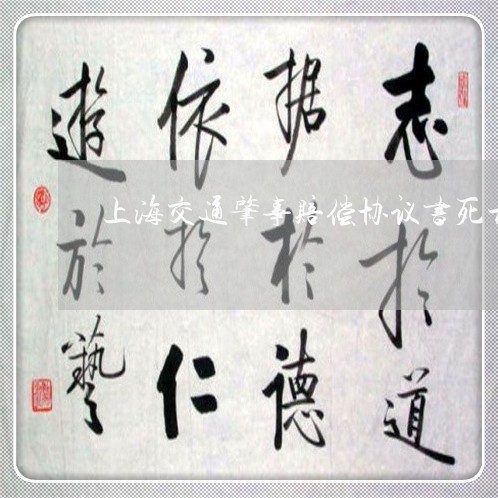 志扵道
据扵德
依扵仁
遊於藝
上海交通肇事赔偿协议书死